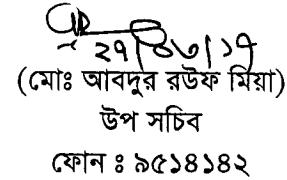 ২৭/০৮/১৭
(মোঃ আবদুর রউফ মিয়া)
উপ সচিব
ফোন ঃ ৯৫১৪১৪২